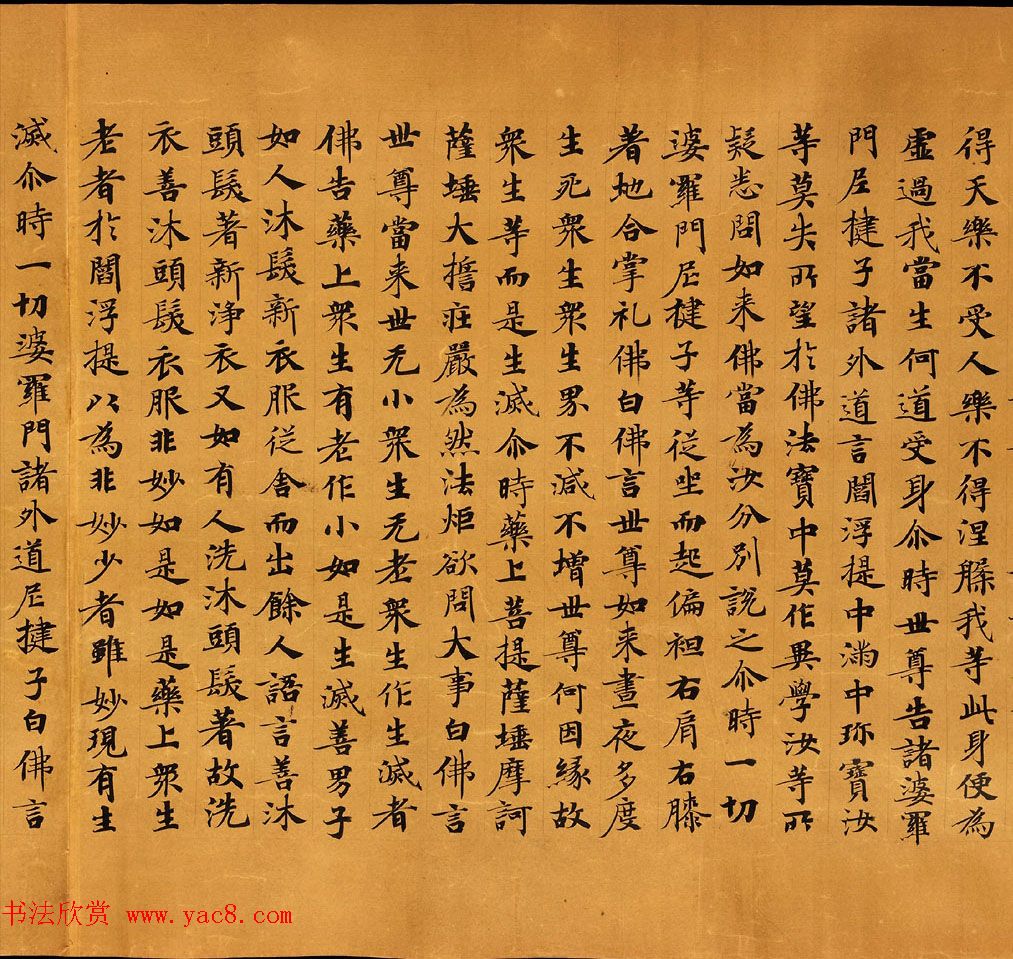 得天樂不受人樂不得涅槃我等此身便為
虛過我當生何道受身尒時世尊告諸婆羅
門尼揵子諸外道言閻浮提中滿中珎寶汝
等莫失所望於佛法寶中莫作異學汝等所
疑悉問如来佛當為汝分別說之尒時一切
婆羅門尼揵子等從坐而起偏袒右肩右膝
著地合掌礼佛白佛言世尊如来晝夜多度
生死衆生衆生界不減不增世尊何因緣故
衆生等而是生滅尒時藥上菩提薩埵摩訶
薩埵大擔疰嚴為然法炬欲問大事白佛言
世尊當来世无小衆生无老衆生作生滅者
佛告藥上衆生有老作小如是生滅善男子
如人沐髮新衣服從舍而出餘人語言善沐
頭髮著新淨衣又如有人洗沐頭髮著故洗
衣善沐頭髮衣服非妙如是如是藥上衆生
老者於閻浮提以為非妙少者雖妙現有生
滅尒時一切婆羅門諸外道尼揵子白佛言
书法欣赏 www.yac8.com